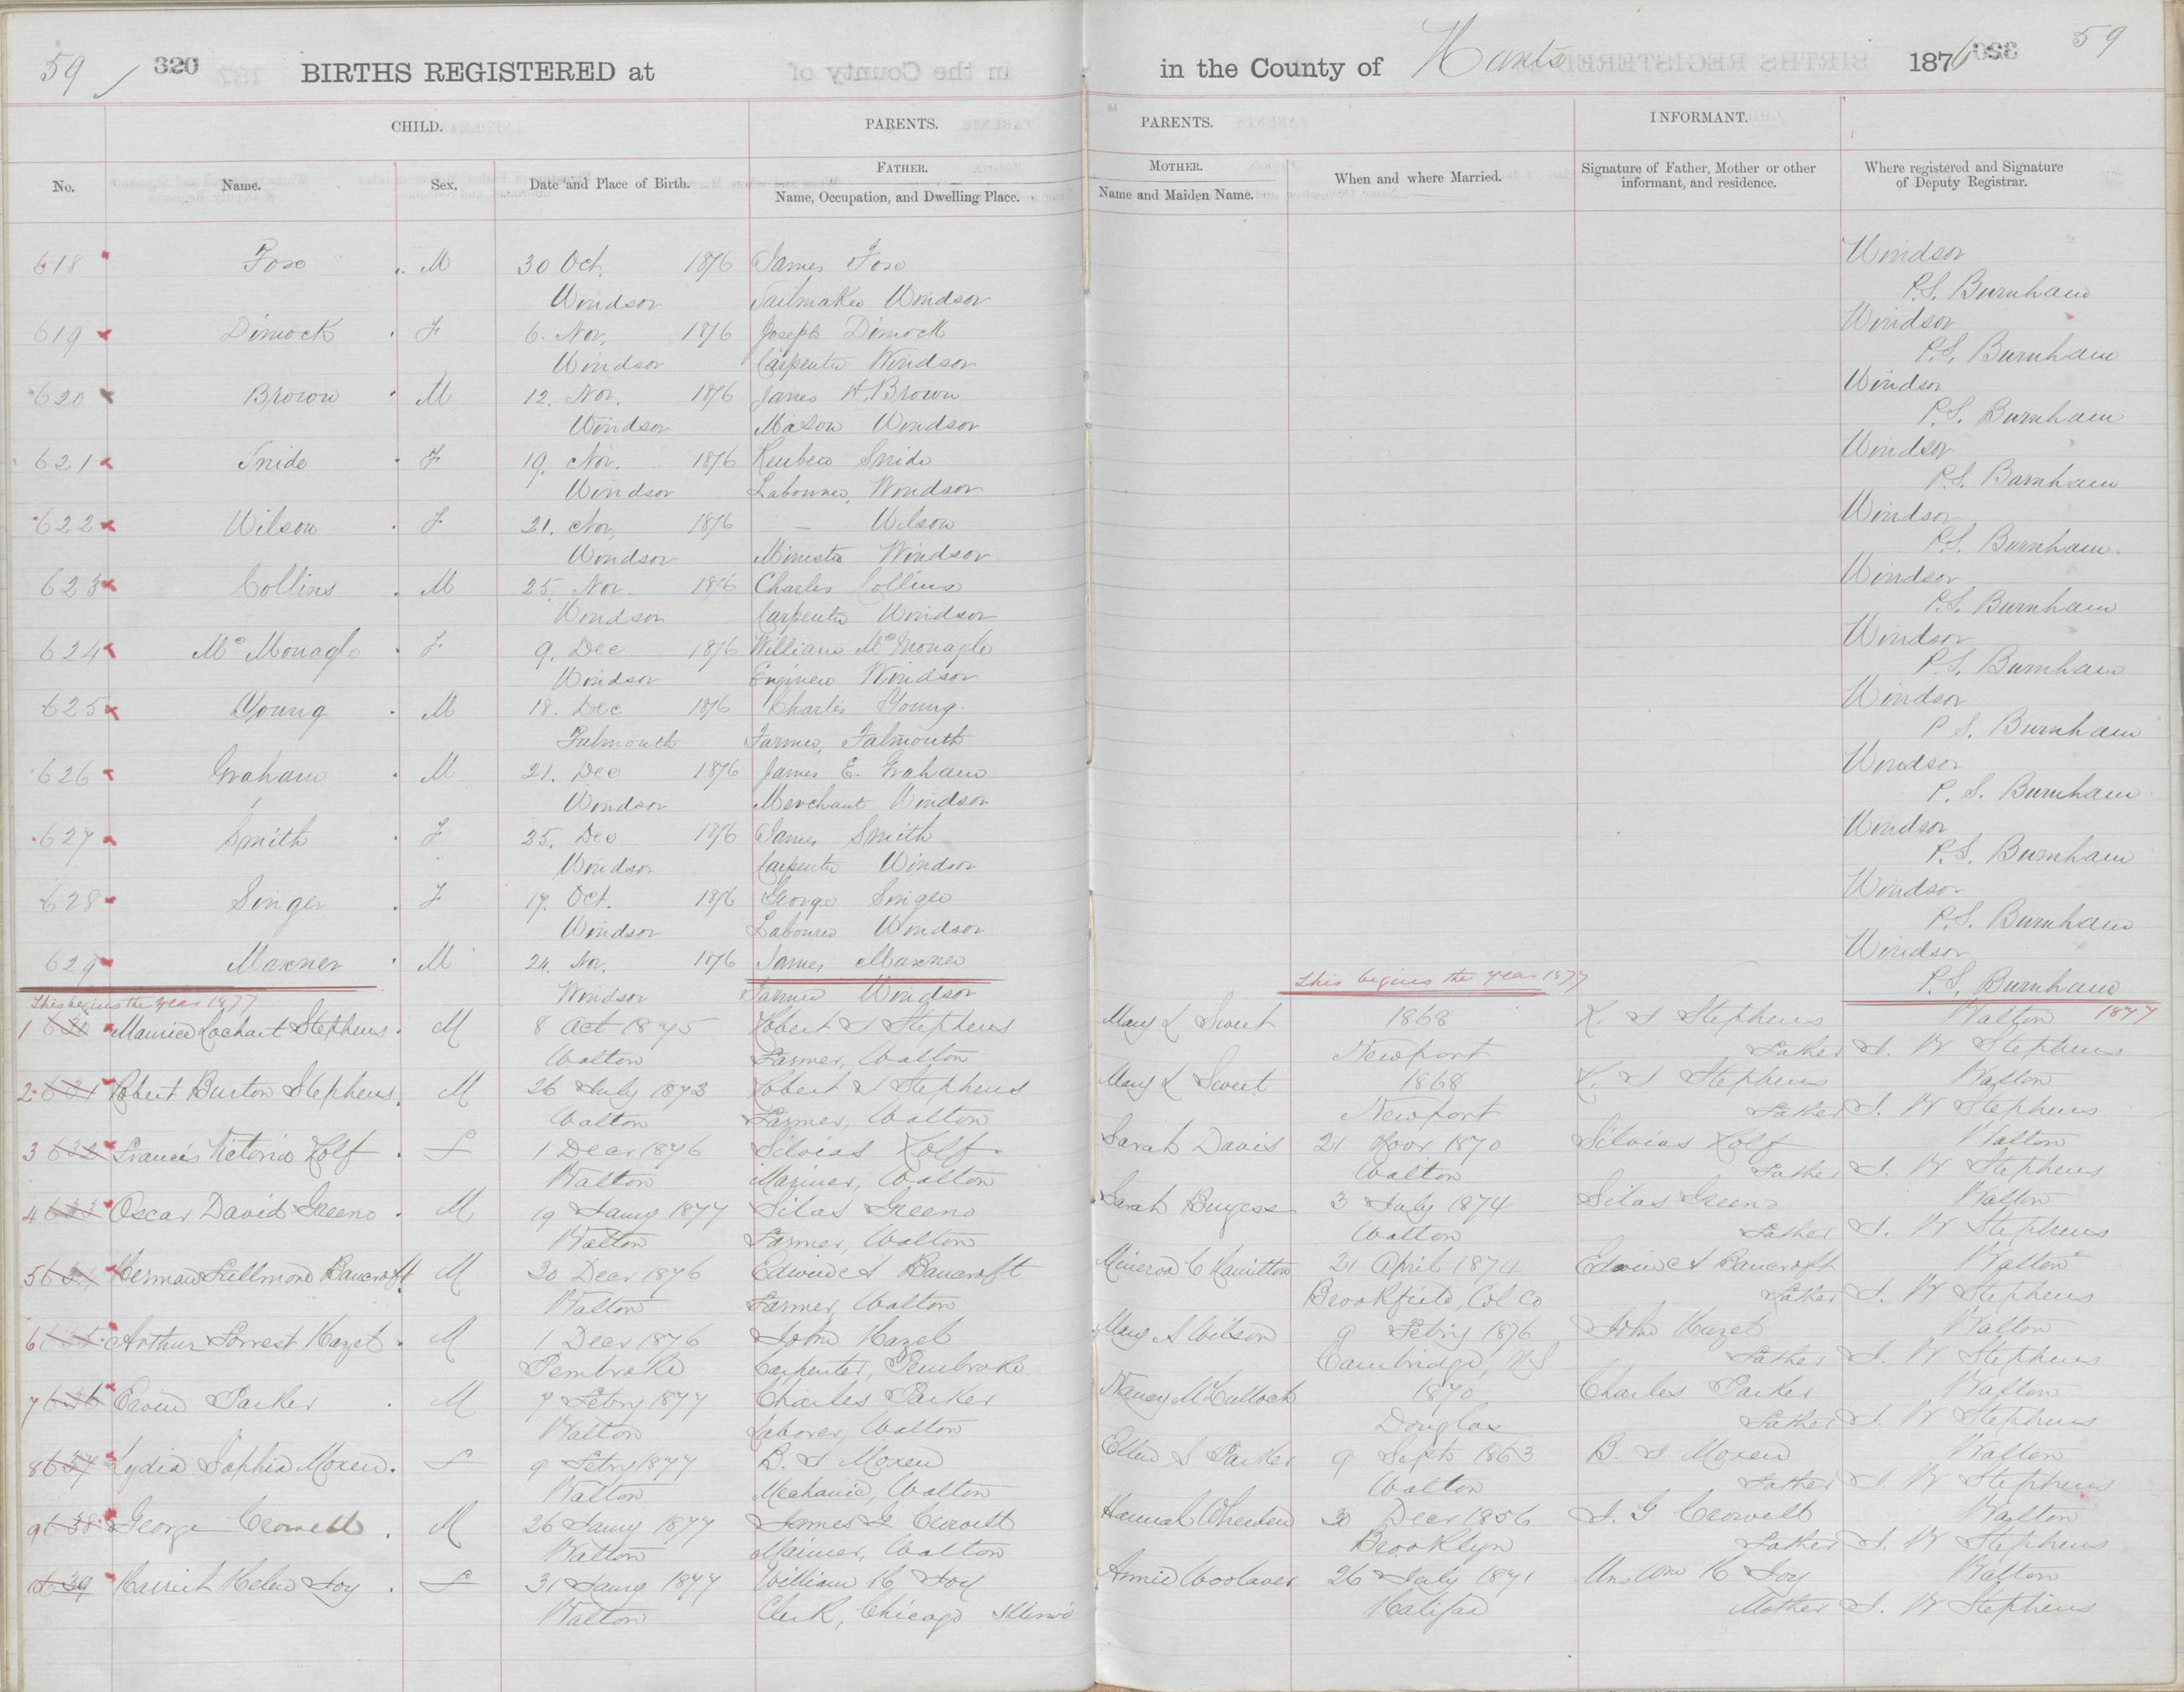 59 320 BIRTHS REGISTERED at in the County of Hants 1876 320 59
CHILD. PARENTS. PARENTS. INFORMANT.
No. Name. Sex. Date and Place of Birth. FATHER. Name, Occupation, and Dwelling Place. MOTHER. Name and Maiden Name. When and where Married. Signature of Father, Mother or other informant, and residence. Where registered and Signature of Deputy Registrar.
618 Fox M 30 Oct. 1876 James Fox Windsor
Windsor Sailmaker Windsor P.S. Burnham
619 Dimock F 6. Nov. 1876 Joseph Dimock Windsor
Windsor Carpenter Windsor P.S. Burnham
620 Brown M 12. Nov. 1876 James H. Brown Windsor
Windsor Mason Windsor P.S. Burnham
621 Snide F 19. Nov. 1876 Reuben Snide Windsor
Windsor Labourer, Windsor P.S. Burnham
622 Wilson F 21. Nov, 1876 — Wilson Windsor
Windsor Minister Windsor P.S. Burnham
623 Collins M 25. Nov. 1876 Charles Collins Windsor
Windsor Carpenter Windsor P.S. Burnham
624 Mc Monagle F 9. Dec 1876 William McMonagle Windsor
Windsor Engineer Windsor P.S. Burnham
625 Young M 18. Dec 1876 Charles Young. Windsor
Falmouth Farmer, Falmouth P S. Burnham
626 Graham M 21. Dec 1876 James E. Graham Windsor
Windsor Merchant Windsor P. S. Burnham
627 Smith F 25. Dec 1876 James Smith Windsor
Windsor Carpenter Windsor P.S. Burnham
628 Singer F 17. Oct. 1876 George Singer Windsor
Windsor Labourer Windsor P.S. Burnham
629 Maxner M 24. Nov. 1876 James Maxner Windsor
This begins the year 1877 Windsor Farmer Windsor This begins the year 1877 P.S. Burnham
1 630 Maurice Lochart Stephens M 8 Oct 1875 Robert S Stephens Mary L Sweet 1868 R. S Stephens Walton 1877
Walton Farmer, Walton Newport Father S. W Stephens
2 631 Robert Burton Stephens M 26 July 1873 Robert S Stephens Mary L Sweet 1868 R. S Stephens Walton
Walton Farmer, Walton Newport Father S. W Stephens
3 632 Francis Victoria Rolf F 1 Decr 1876 Silvias Rolf Sarah Davis 21 Novr 1870 Silvias Rolf Walton
Walton Mariner, Walton Walton Father S. W Stephens
4 633 Oscar David Greeno M 9 Jany 1877 Silas Greeno Sarah Burgess 3 July 1874 Silas Greeno Walton
Walton Farmer, Walton Walton Father S. W Stephens
5 634 Herman Fullmond Bancroft M 20 Decr 1876 Bancroft Minerva C Hamilton 21 April 1874 Bancroft Walton
Walton Farmer, Walton Brookfield, Col Co Father S. W Stephens
6 635 Arthur Forrest Hazel M 1 Decr 1876 John Hazel Mary A Wilson 9 Febry 1876 John Hazel Walton
Pembroke Carpenter, Pembroke Cambridge, NS Father S. W Stephens
7 636 Ervin Parker M 7 Febry 1877 Charles Parker Nancy McCulloch 1870 Charles Parker Walton
Walton Laborer, Walton Douglas Father S. W Stephens
8 637 Lydia Sophia Moxen F 9 Febry 1877 B. S Moxen Ellen S Parker 9 Sept 1863 B. S Moxen Walton
Walton Mechanic, Walton Walton Father S. W Stephens
9 638 George Crowell M 26 Jany 1877 James G Crowell Hannah 30 Decr 1856 J. G Crowell Walton
Walton Mariner, Walton Brooklyn Father S. W Stephens
10 639 Harriet Helen Joy F 31 Jany 1877 William H Joy Annie Woolaver 26 July 1871 Mrs Wm H Joy Walton
Walton Clerk, Chicago Illinois Halifax Mother S. W Stephens